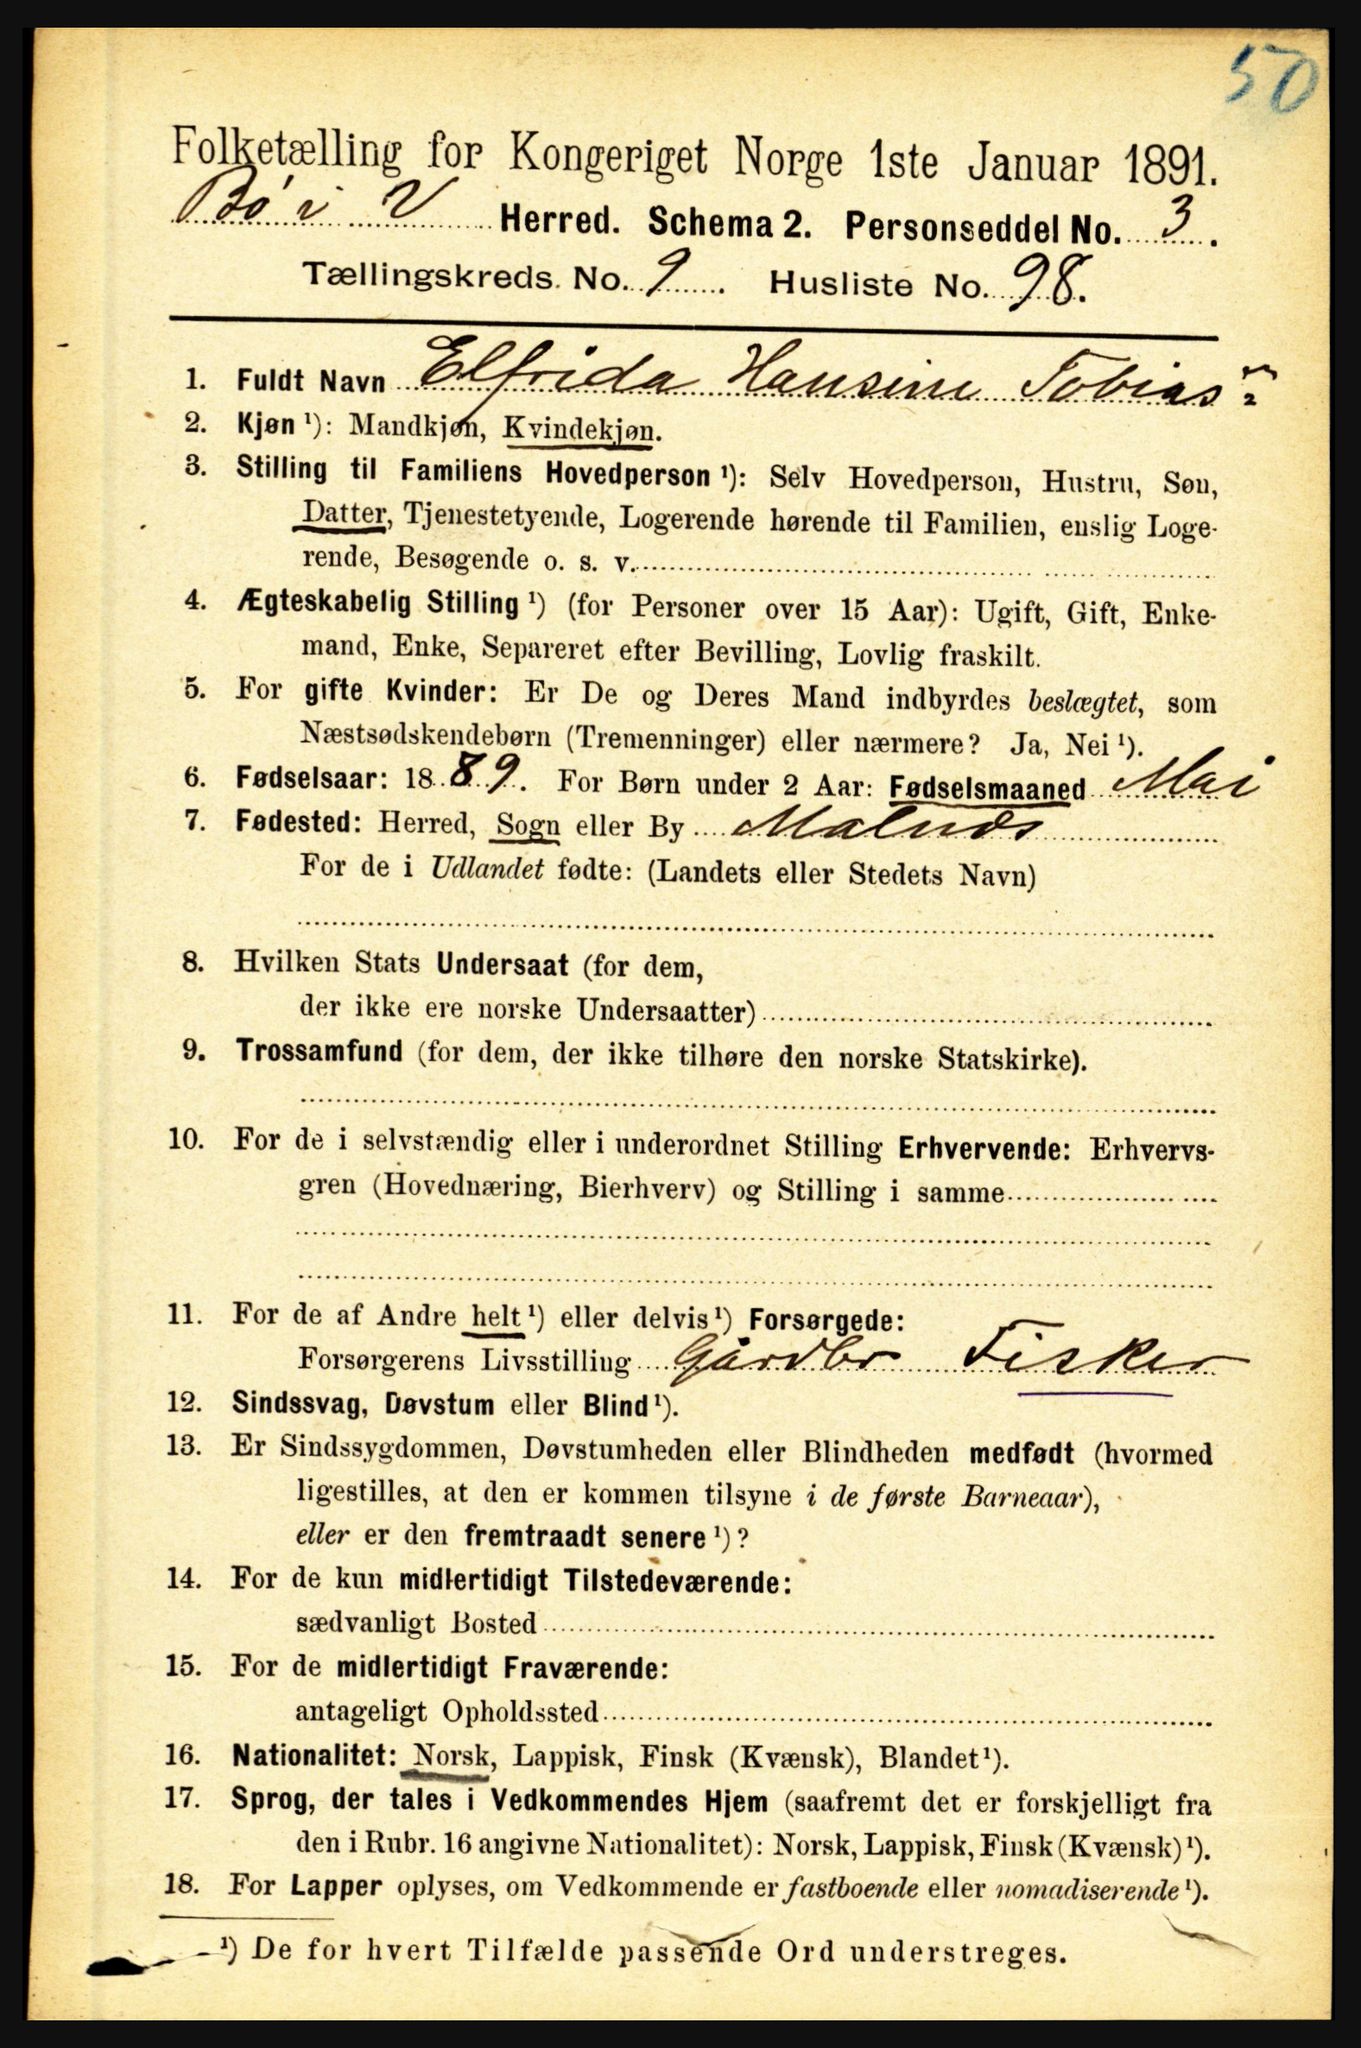 50
Folketælling for Kongeriget Norge 1ste Januar 1891.
Bø i V Herred. Schema 2. Personseddel No. 3.
Tællingskreds No. 9. Husliste No. 98.
1. Fuldt Navn Elfrida Hansine Tobias
2. Kjøn ¹): Mandkjøn, Kvindekjøn.
3. Stilling til Familiens Hovedperson ¹): Selv Hovedperson, Hustru, Søn,
Datter, Tjenestetyende, Logerende hørende til Familien, enslig Loge-
rende, Besøgende o. s. v.
4. Ægteskabelig Stilling ¹) (for Personer over 15 Aar): Ugift, Gift, Enke-
mand, Enke, Separeret efter Bevilling, Lovlig fraskilt.
5. For gifte Kvinder: Er De og Deres Mand indbyrdes beslægtet, som
Næstsødskendebørn (Tremenninger) eller nærmere? Ja, Nei ¹).
6. Fødselsaar: 1889. For Børn under 2 Aar: Fødselsmaaned Mai
7. Fødested: Herred, Sogn eller By Malnæs
For de i Udlandet fødte: (Landets eller Stedets Navn)
8. Hvilken Stats Undersaat (for dem,
der ikke ere norske Undersaatter)
9. Trossamfund (for dem, der ikke tilhøre den norske Statskirke).
10. For de i selvstændig eller i underordnet Stilling Erhvervende: Erhvervs-
gren (Hovednæring, Bierhverv) og Stilling i samme
11. For de af Andre helt ¹) eller delvis ¹) Forsørgede:
Forsørgerens Livsstilling Gårdbr Fisker
12. Sindssvag, Døvstum eller Blind ¹).
13. Er Sindssygdommen, Døvstumheden eller Blindheden medfødt (hvormed
ligestilles, at den er kommen tilsyne i de første Barneaar),
eller er den fremtraadt senere ¹)?
14. For de kun midlertidigt Tilstedeværende:
sædvanligt Bosted
15. For de midlertidigt Fraværende:
antageligt Opholdssted
16. Nationalitet: Norsk, Lappisk, Finsk (Kvænsk), Blandet ¹).
17. Sprog, der tales i Vedkommendes Hjem (saafremt det er forskjelligt fra
den i Rubr. 16 angivne Nationalitet): Norsk, Lappisk, Finsk (Kvænsk) ¹).
18. For Lapper oplyses, om Vedkommende er fastboende eller nomadiserende ¹).
¹) De for hvert Tilfælde passende Ord understreges.